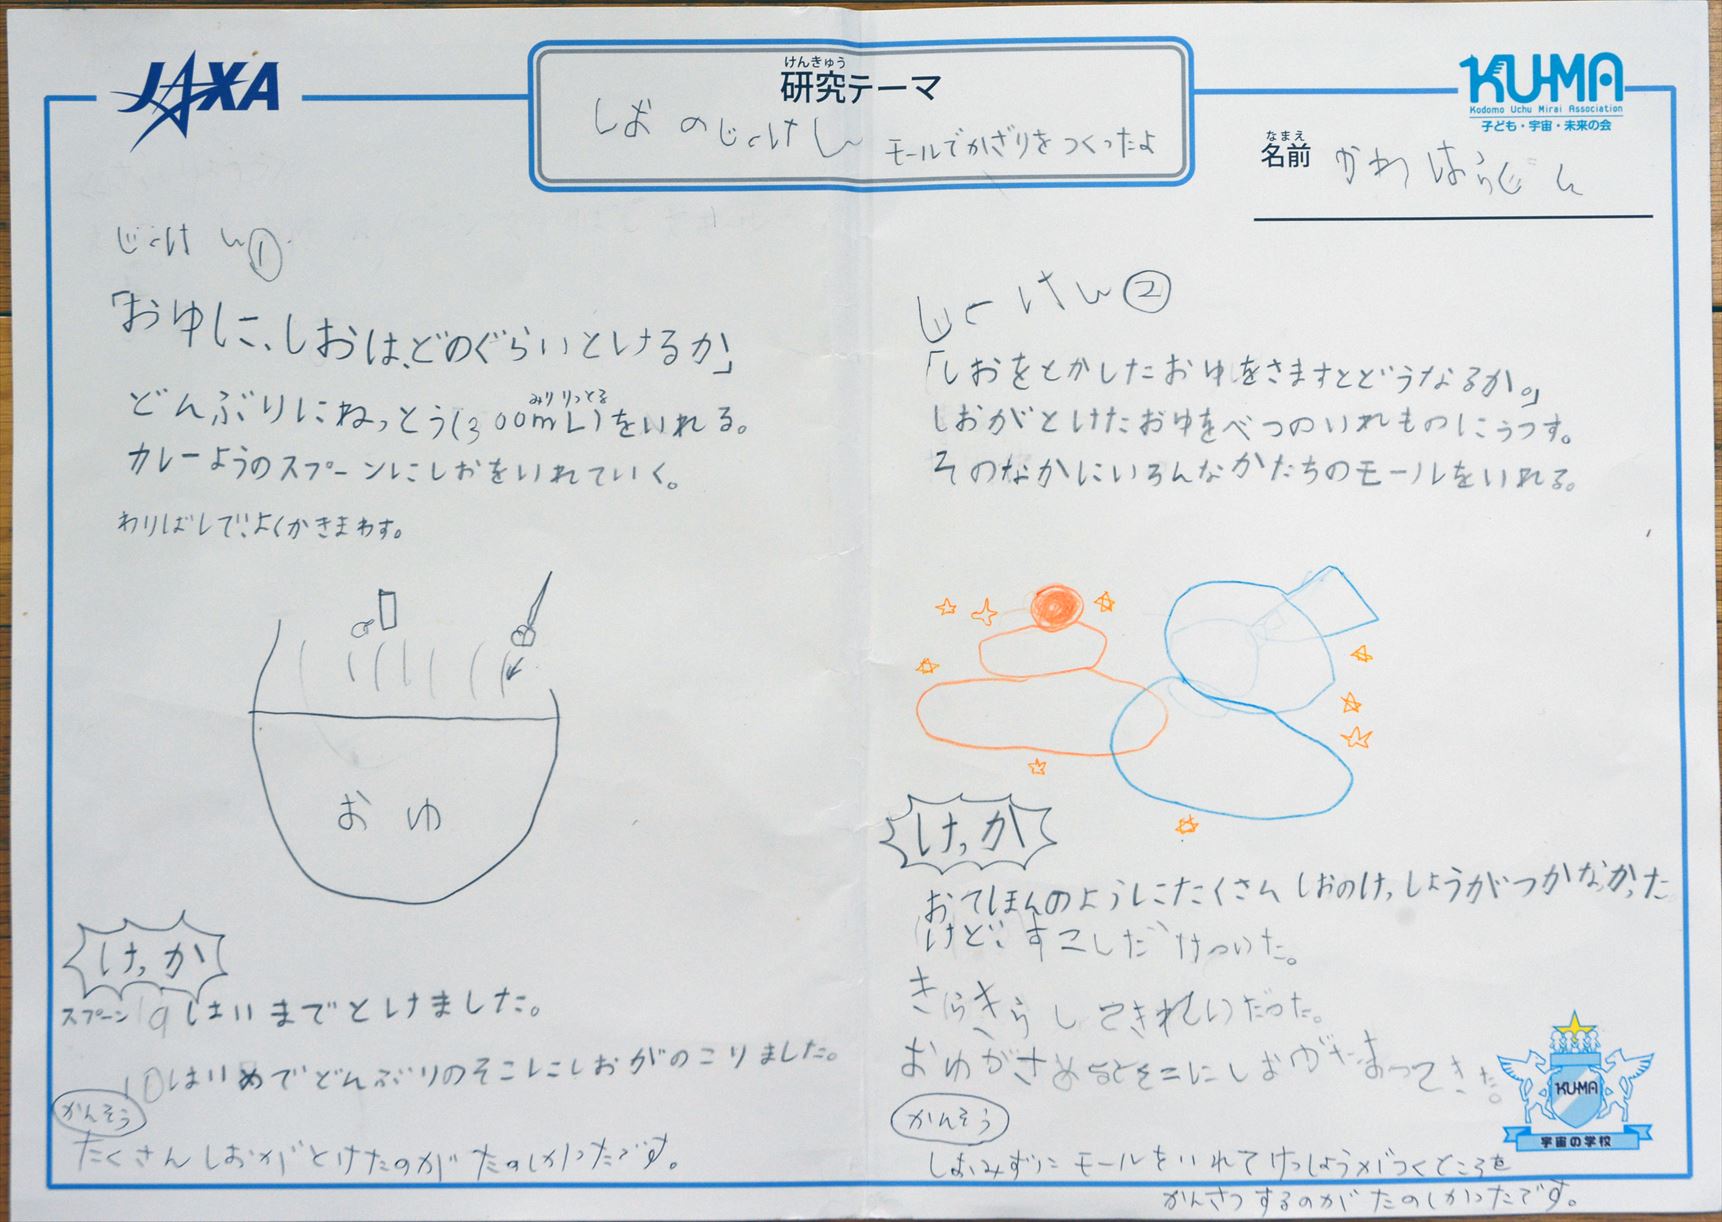 JAXA
けんきゅう
研究テーマ
しおのじっけん モールでかざりをつくったよ
KU-MA
Kodomo Uchu Mirai Association
子ども・宇宙・未来の会
なまえ
名前 かわはらじん
じっけん①
「おゆに、しおは、どのぐらいとけるか」
みりりっとる
どんぶりにねっとう(300mL)をいれる。
カレーようのスプーンにしおをいれていく。
わりばしで、よくかきまわす。
おゆ
けっか
スプーン9はいまでとけました。
10はいめでどんぶりのそこにしおがのこりました。
かんそう
たくさんしおがとけたのがたのしかったです。
じっけん②
「しおをとかしたおゆをさますとどうなるか。」
しおがとけたおゆをべつのいれものにうつす。
そのなかにいろんなかたちのモールをいれる。
けっか
おてほんのようにたくさんしおのけっしょうがつかなかった
けど、すこしだけついた。
きらきらしてきれいだった。
おゆがさめるとそこにしおがたまってきた。
かんそう
しおみずにモールをいれてけっしょうがつくところを
かんさつするのがたのしかったです。
KU-MA
宇宙の学校